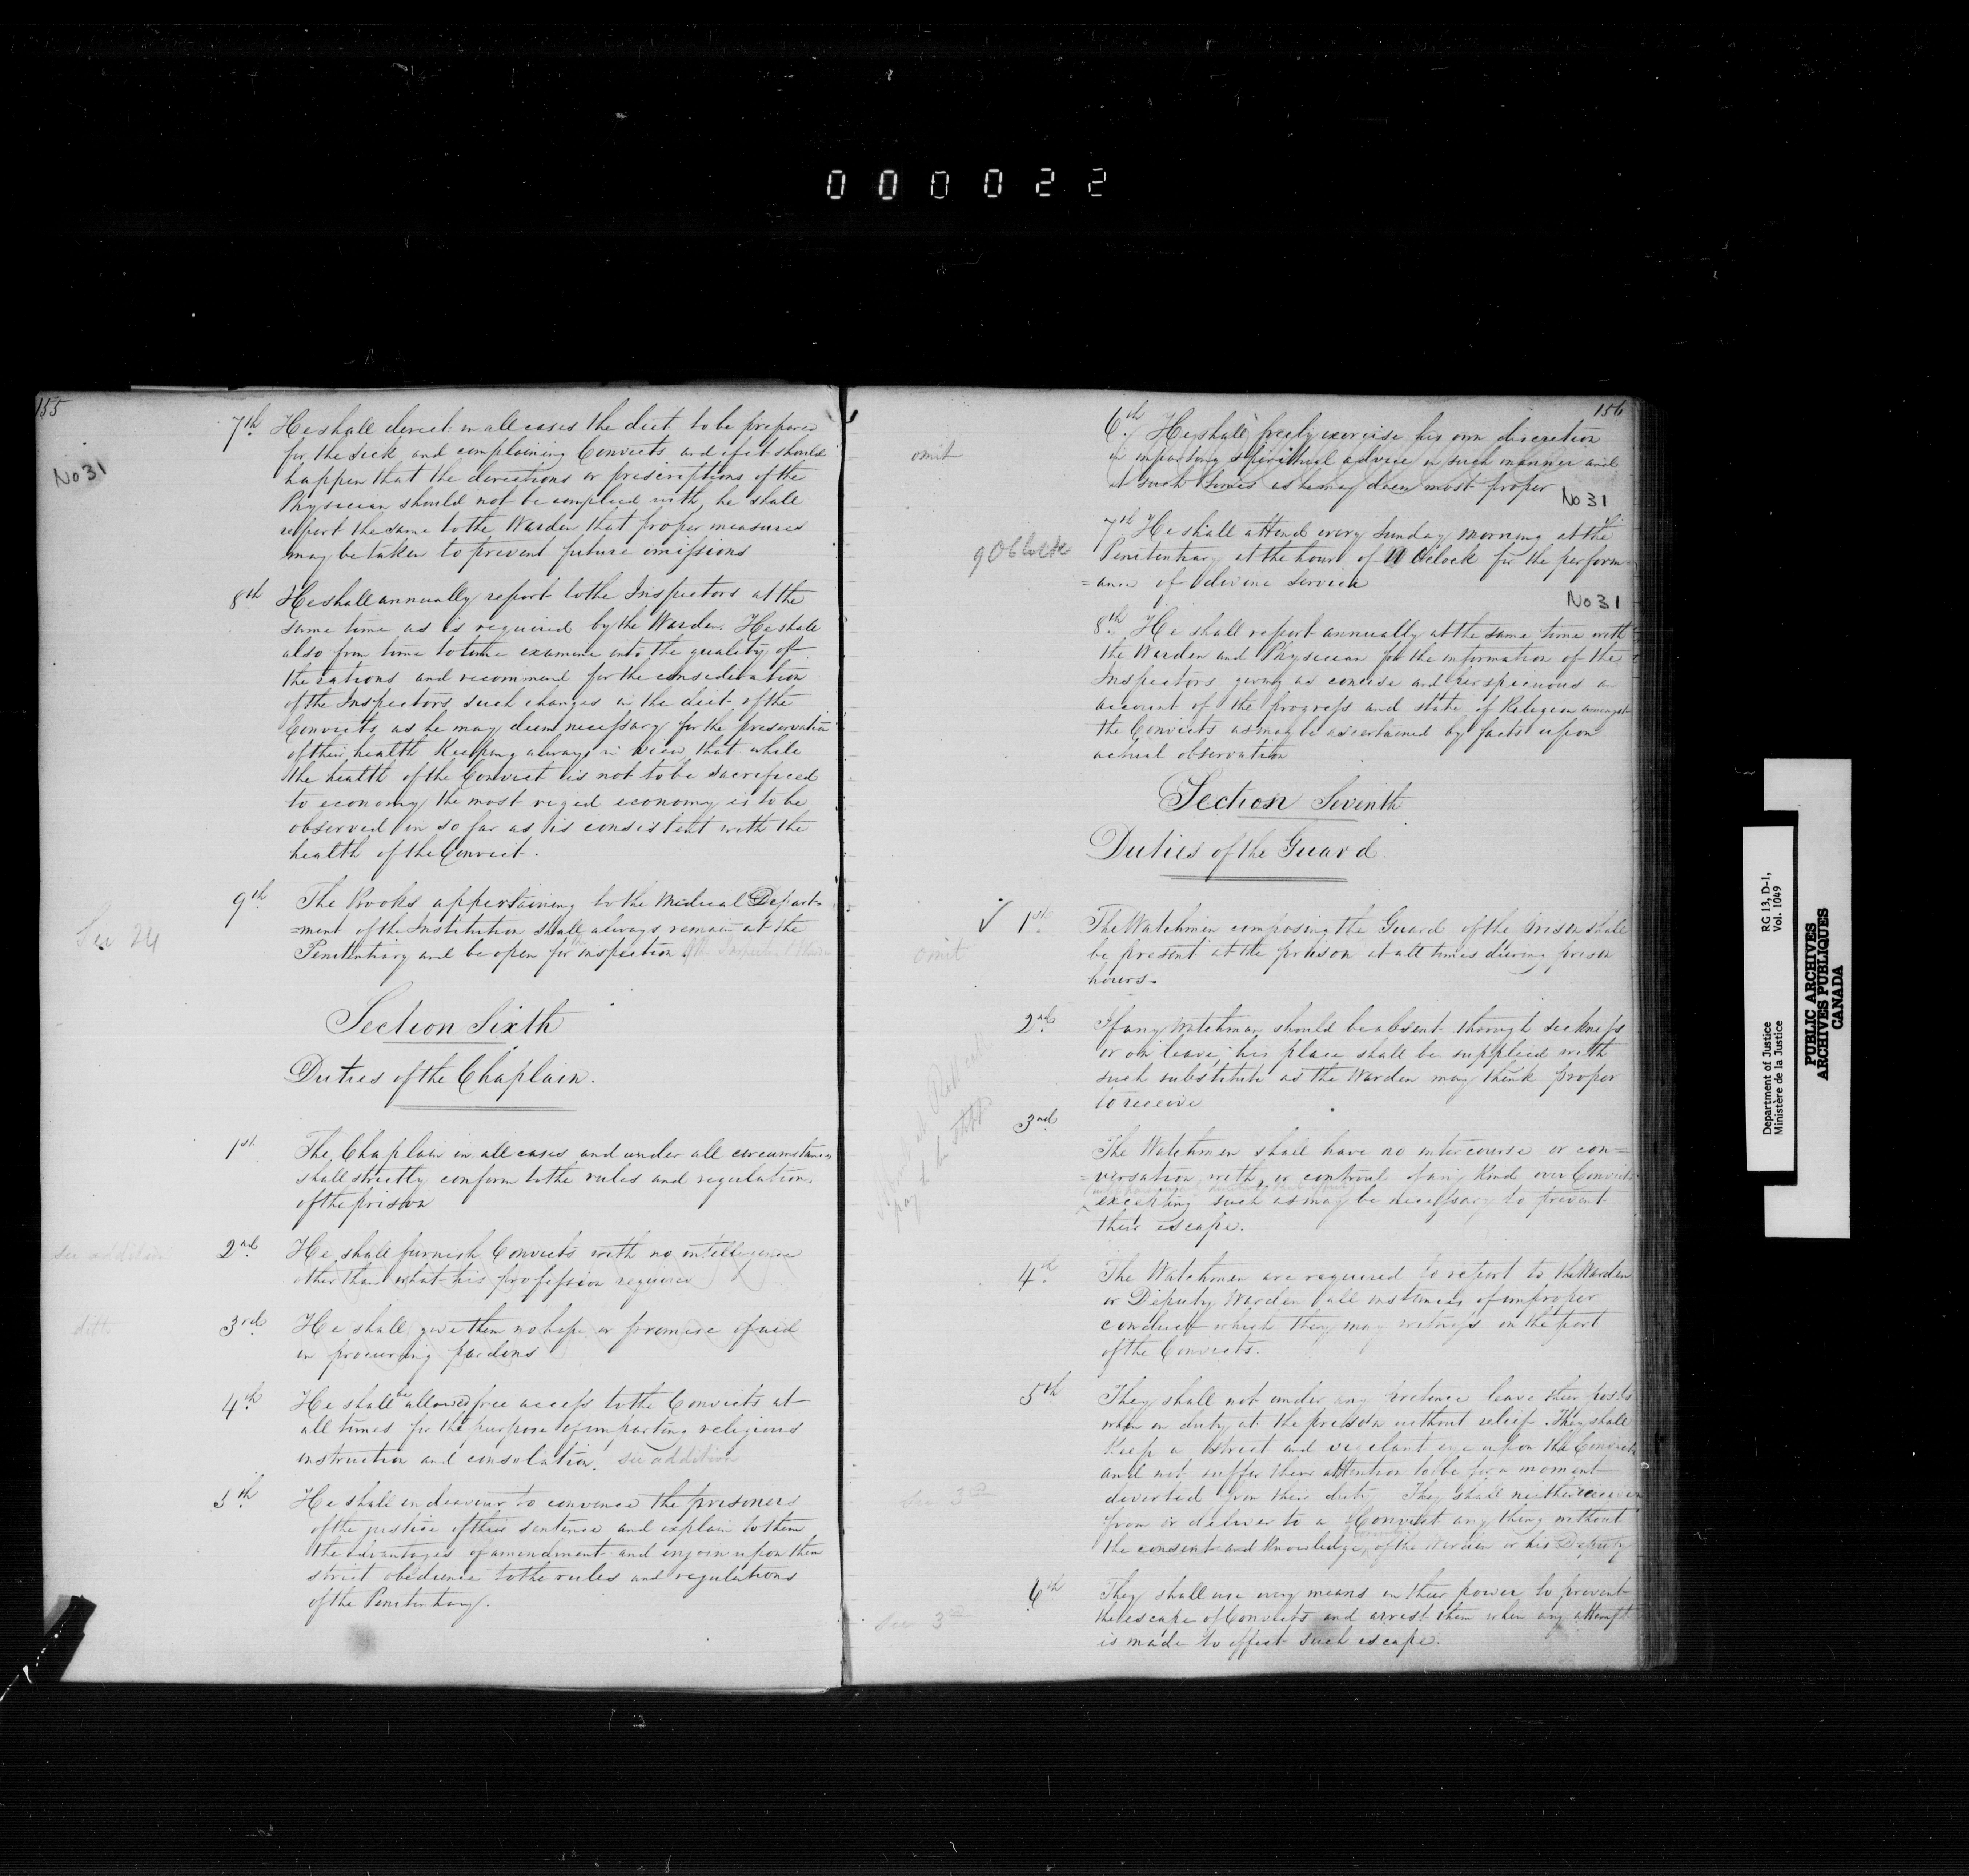 000022
155
No 31
7th He shall direct in all cases the diet to be prepared
for the sick and complaining Convicts and if it should
happen that the directions or prescriptions of the
Physician should not be complied with, he shall
report the same to the Warden that proper measures
may be taken to prevent future omissions
8th He shall annually report to the Inspectors at the
same time as is required by the Warden. He shall
also from time to time examine into the quality of
the rations and recommend for the consideration
of the Inspectors such changes in the diet of the
Convicts as he may deem necessary for the preservation
of their health Keeping always in view that while
the health of the Convict is not to be sacrificed
to economy the most riged economy is to be
observed in so far as is consistent with the
health of the Convict.
Sec 24
9th The Books appertaining to the Medical Depart=
=ment of the Institution shall always remain at the
Penitentiary and be open for inspection
Section Sixth
Duties of the Chaplain.
1st The Chaplain in all cases and under all circumstances
shall strictly conform to the rules and regulations
of the prison
see addition
2nd He shall furnish Convicts with no intelligence
other than what his profession requires
ditto
3rd He shall give them no hope or promise of aid
in procuring pardons
4th He shall be allowed free access to the Convicts at
all times for the purpose of imparting religious
instruction and consolation. see addition
5th He shall endeavour to convince the prisoners
of the justice of their sentence and explain to them
the advantages of amendment and enjoin upon them
strict obedience to the rules and regulations
of the Penitentiary.
156
omit
6th He shall freely exercise his own discretion
in imparting spiritual advice in such manner and
at such times as he may deem most proper
No 31
9 OClock
7th He shall attend every Sunday morning at the
Penitentiary at the hour of O'Clock for the perform=
=ance of divine service
No 31
8th He shall report annually at the same time with
the Warden and Physician for the information of the
Inspectors giving as concise and perspicuous an
account of the progress and state of Religion amongst
the Convicts as may be ascertained by facts upon
actual observation
Section Seventh
Duties of the Guard.
omit
1st The Watchmen composing the Guard of the prison shall
be present at the prison at all times during prison
hours.
2nd If any Watchman should be absent through sickness
or on leave, his place shall be supplied with
such substitute as the Warden may think proper
to receive
pay to be stopp
3rd
The Watchmen shall have no intercourse or con=
=versation with, or controul of any Kind over Convicts
excepting such as may be necessary to prevent
their escape.
4th The Watchmen are required to report to the Warden
or Deputy Warden all instances of improper
conduct which they may witness in the part
of the Convicts.
5th They shall not under any pretence leave their posts
when on duty at the prison without relief. They shall
Keep a strict and vigilant eye upon the Convicts
and not suffer their attention to be for a moment
diverted from their duty. They shall neither receive
from or deliver to a Convict any thing without
the consent and Knowledge of the Warden or his Deputy
See 3rd
6th They shall use every means in their power to prevent
the escape of Convicts and arrest them when any attempt
is made to effect such escape.
See 3rd
Department of Justice
Ministère de la Justice
RG 13, D-1,
Vol. 1049
PUBLIC ARCHIVES
ARCHIVES PUBLIQUES
CANADA